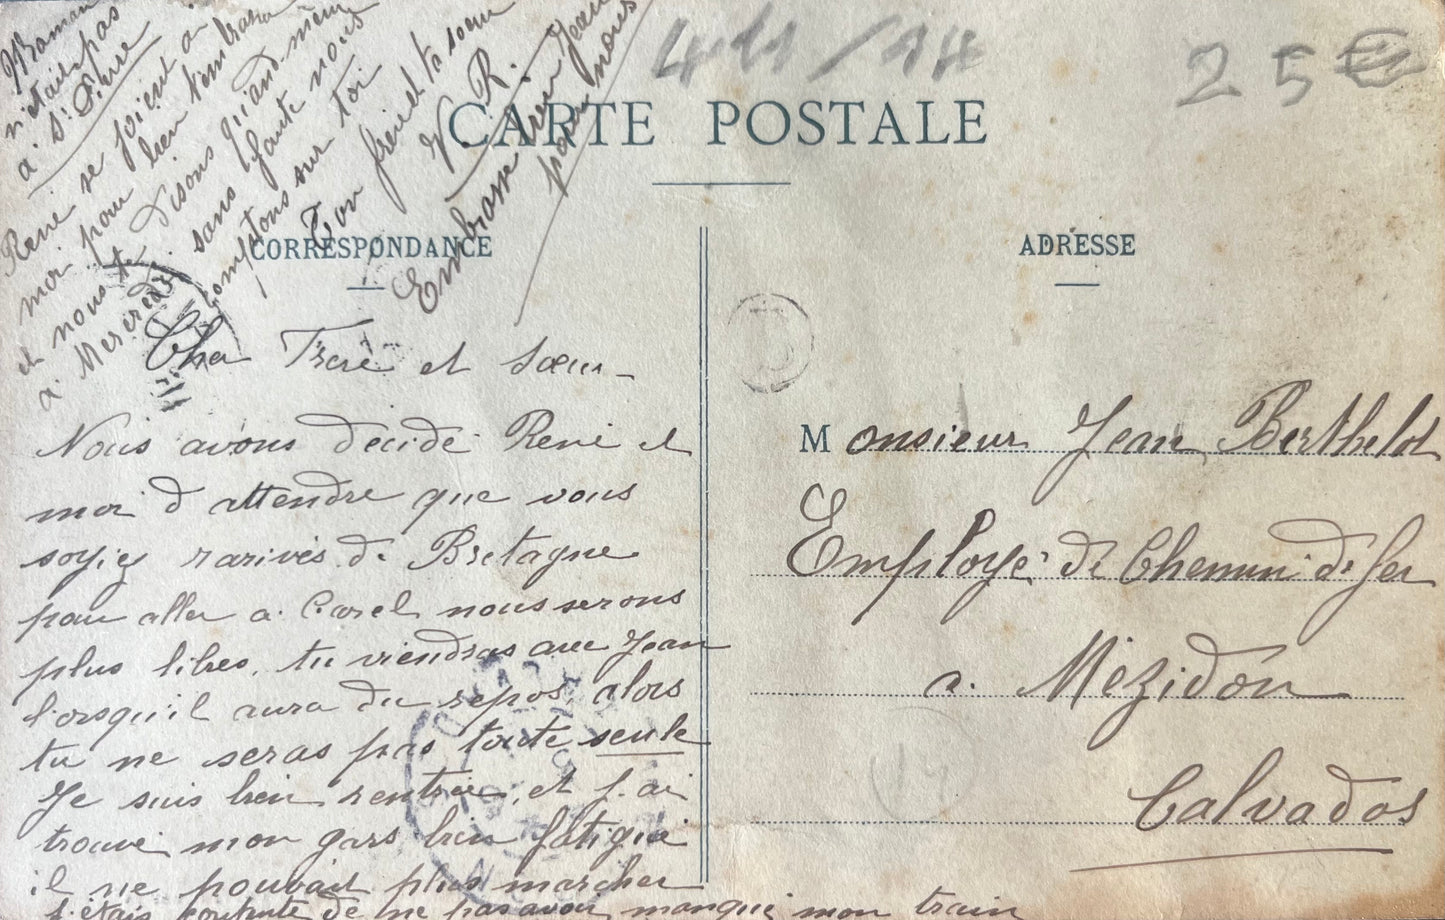 411/14
25€
CARTE POSTALE
CORRESPONDANCE
ADRESSE
Cher Frere et Sœur
Nous avons décidé René et
moi d attendre que vous
soyiez rarivés de Bretagne
pour aller a Carel nous serons
plus libres. tu viendras avec Jean
lorsqu'il aura du repos, alors
tu ne seras pas toute seule
Je suis bien rentrée, et j.ai
trouvé mon gars bien fatigué
il ne pouvait plus marcher
j.étais contente de ne pas avoir manqué mon train
Maman
n'était pas
a St Pierre
René se joient a
moi pour bien t'embrasser
et nous te disons quand même
a Mercredi. sans faute nous
comptons sur toi
Ton frère et ta sœur
V. R.
Embrasse bien Jean
pour nous
Monsieur Jean Berthelot
Employé de Chemin de fer
a. Mézidon
Calvados
14